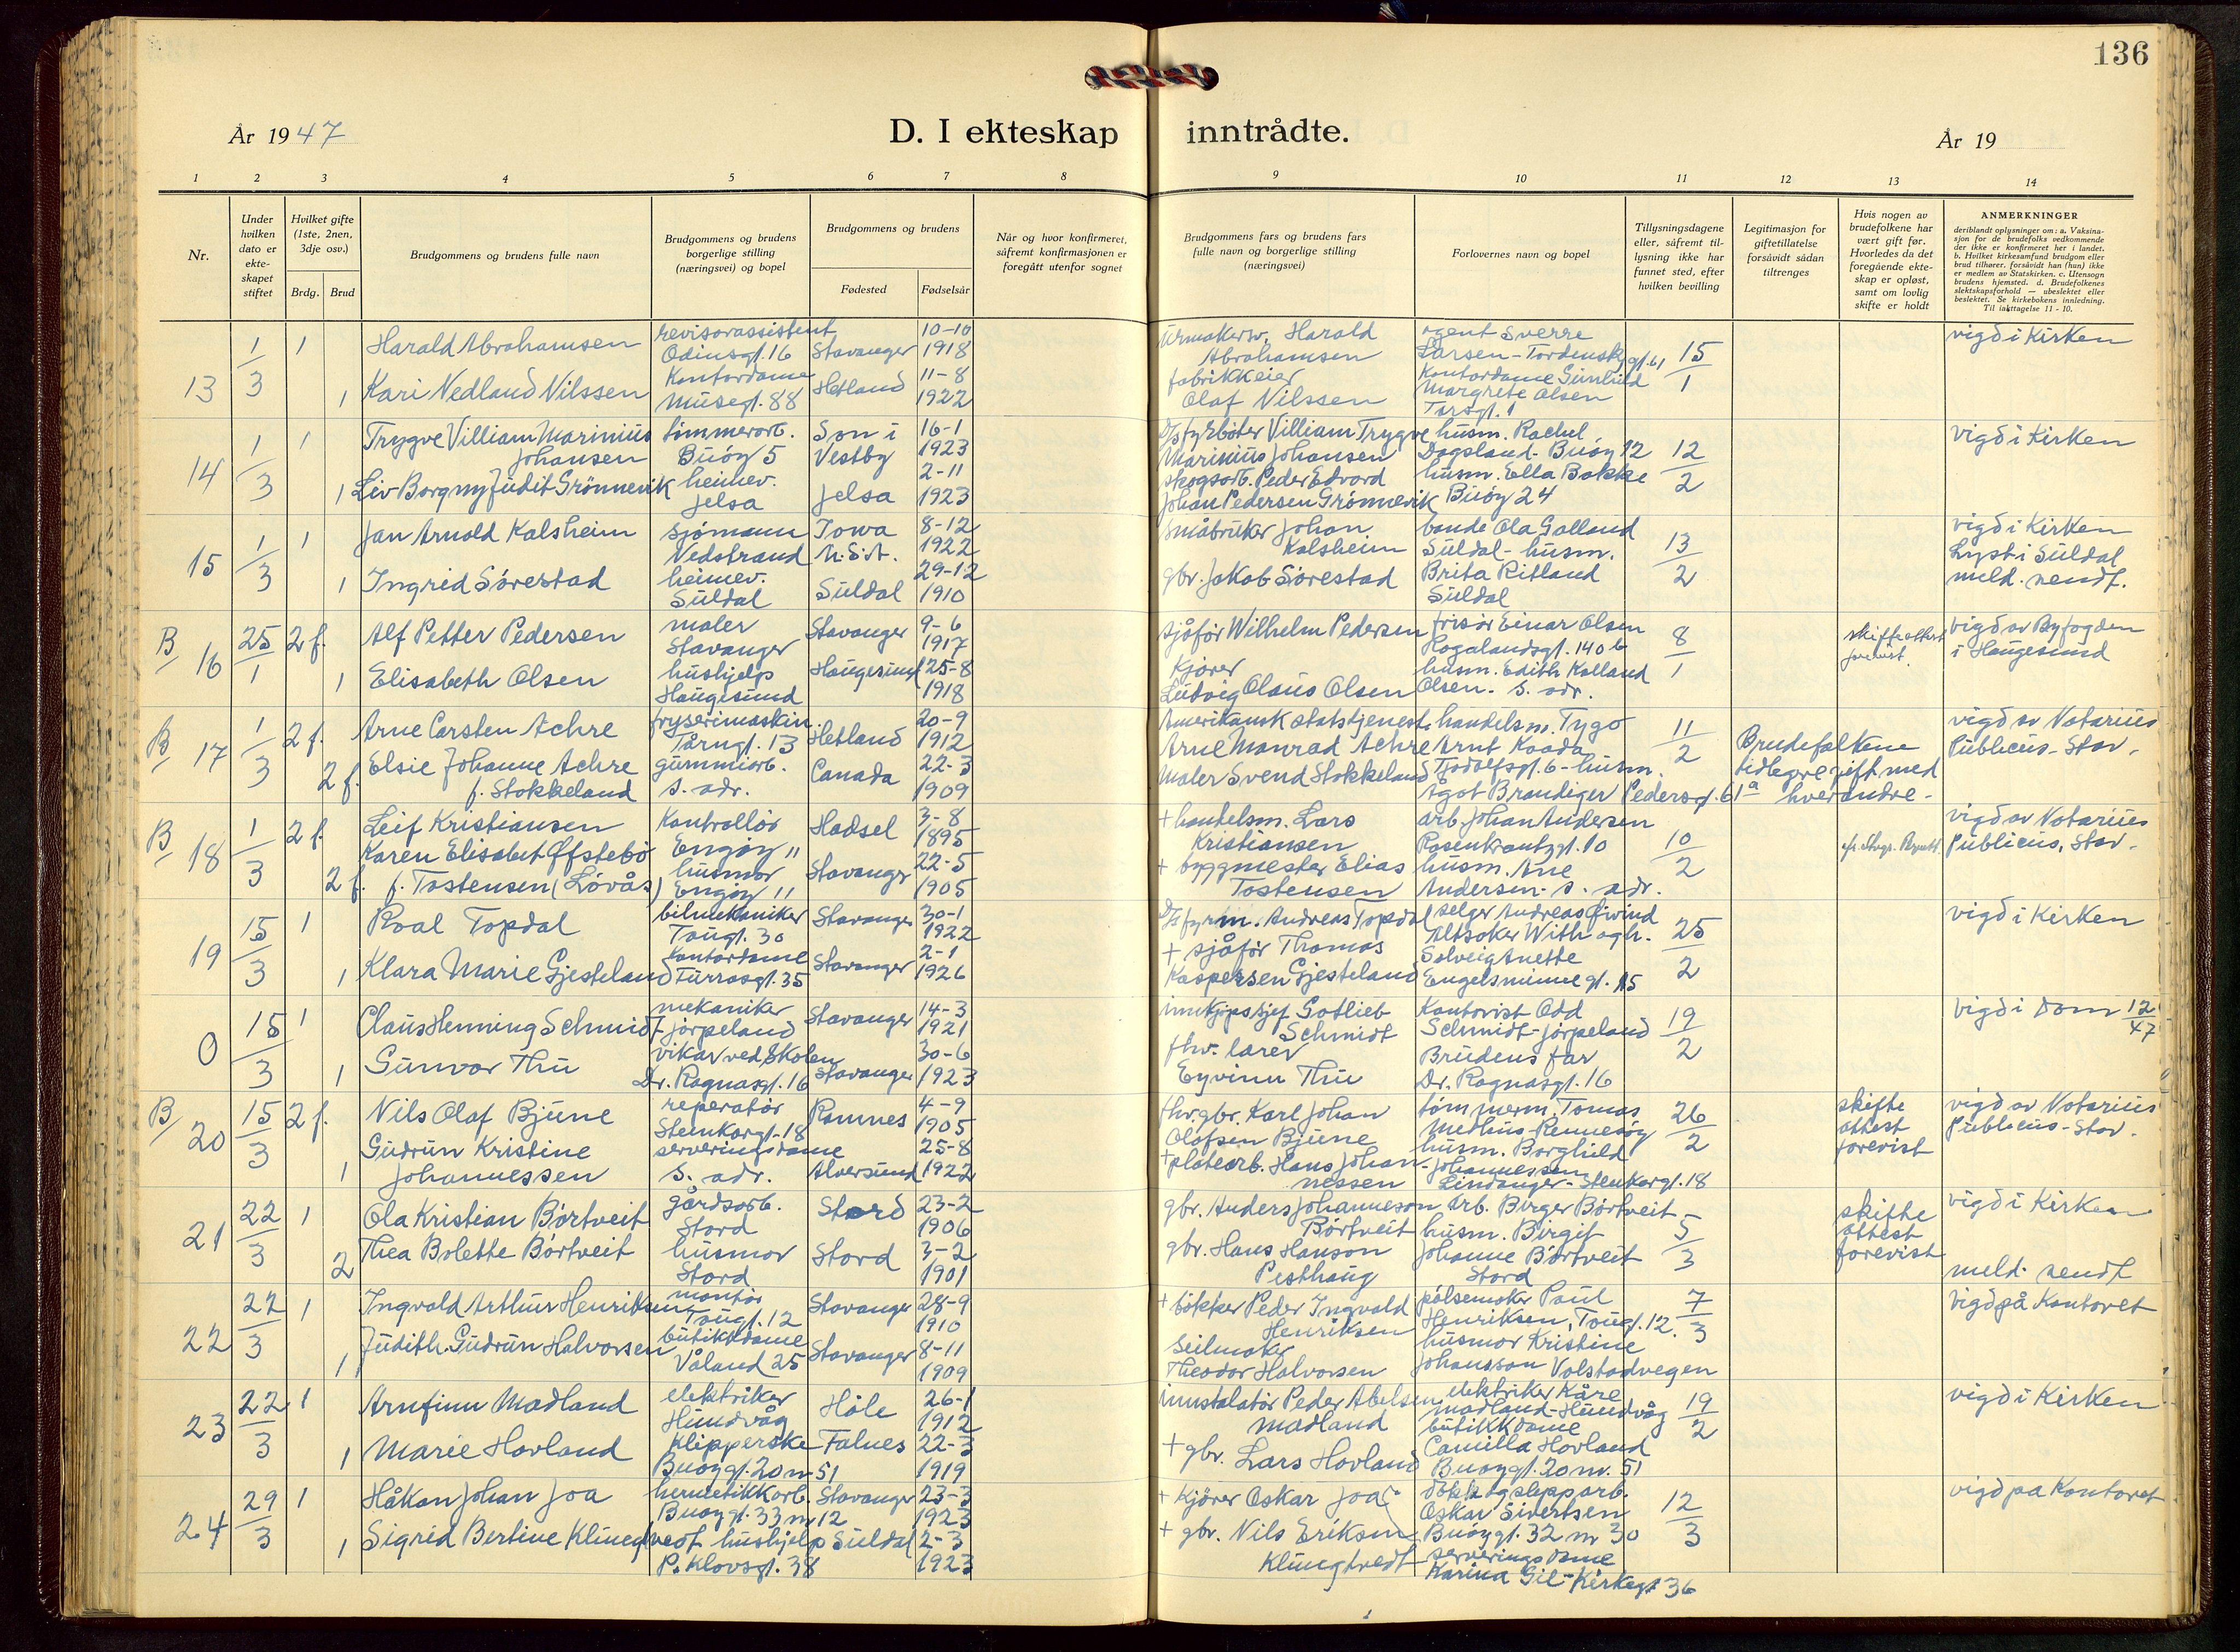 136
År 1947
D. I ekteskap inntrådte.
År 19
1 2 3 4 5 6 7 8 9 10 11 12 13 14
Nr.
Under hvilken dato er ekteskapet stiftet
Hvilket gifte (1ste, 2nen, 3dje osv.)
Brdg. Brud
Brudgommens og brudens fulle navn
Brudgommens og brudens borgerlige stilling (næringsvei) og bopel
Brudgommens og brudens
Fødested
Fødselsår
Når og hvor konfirmeret, såfremt konfirmasjonen er foregått utenfor sognet
Brudgommens fars og brudens fars fulle navn og borgerlige stilling (næringsvei)
Forlovernes navn og bopel
Tillysningsdagene eller, såfremt tillysning ikke har funnet sted, efter hvilken bevilling
Legitimasjon for giftetillatelse forsåvidt sådan tiltrenges
Hvis nogen av brudefolkene har vært gift før. Hvorledes da det foregående ekteskap er opløst, samt om lovlig skifte er holdt
ANMERKNINGER
deriblandt oplysninger om: a. Vaksinasjon for de brudefolks vedkommende der ikke er konfirmeret her i landet. b. Hvilket kirkesamfund brudgom eller brud tilhører, forsåvidt han (hun) ikke er medlem av Statskirken. c. Utensogn brudens hjemsted. d. Brudefolkenes slektskapsforhold — ubeslektet eller beslektet. Se kirkebokens innledning. Til iakttagelse 11 - 10.
13 1/3 1 Harald Abrahamsen revisorassistent Odinsgt. 16 Stavanger 10-10 1918
1 Kari Nedland Nilssen Kontordame Musegt. 88 Hetland 11-8 1922
Urmakersv. Harald Abrahamsen
fabrikkeier Olaf Nilssen
agent Sverre Larsen - Tordenskj.gt. 61
Kontordame Gunhild Margrete Olsen Torsgt. 1
15/1 vigd i Kirken
14 1/3 1 Trygve Villiam Marinius Johansen tømmerarb. Buøy 5 Son i Vestby 16-1 1923
1 Liv Borgny Judit Grønnevik heimev. Jelsa Jelsa 2-11 1923
D/s fyrbøter Villiam Trygve Marinius Johansen
skogsarb. Peder Edvard Johan Pedersen Grønnevik
husm. Rachel Dagsland - Buøy 12
husm. Ella Bakke Buøy 24
12/2 vigd i Kirken
15 1/3 1 Jan Arnold Kalsheim sjømann Nedstrand Iowa U.S.A. 8-12 1922
1 Ingrid Sørestad heimev. Suldal Suldal 29-12 1910
Småbruker Johan Kalsheim
gbr. Jakob Sørestad
bonde Ola Galland Suldal - husm. Brita Ritland Suldal
13/2 vigd i Kirken Lyst i Suldal meld. sendt.
B 16 25/1 2 f. Alf Petter Pedersen maler Stavanger Stavanger 9-6 1917
1 Elisabeth Olsen hushjelp Haugesund Haugesund 25-8 1918
sjåfør Wilhelm Pedersen
Kjører Ludvig Olaus Olsen
frisør Einar Olsen Rogalandsgt. 140 b
husm. Edith Kolland Olsen - s. adr.
8/1 skifteattest forevist. vigd av Byfogden i Haugesund
B 17 1/3 2 f. Arne Carsten Achre fryserimaskin. Tårngt. 13 Hetland 20-9 1912
2 f. Elsie Johanne Achre f. Stokkeland gummiarb. s. adr. Canada 22-3 1909
Amerikansk statstjenest. Arne Monrad Achre
Maler Svend Stokkeland
handelsm. Tygo Arnt Kaada Tjodolfsgt. 6 - husm. Ågot Brandiger Pedersgt. 61a
11/2 Brudefolkene tidlegre gift med hverandre - vigd av Notarius Publicus - Stav.
B 18 1/3 2 f. Leif Kristiansen Kontrollør Engøy 11 Hadsel 3-8 1895
2 f. Karen Elisabet Offstebø f. Tostensen (Løvås) husmor Engøy 11 Stavanger 22-5 1905
+ handelsm. Lars Kristiansen
+ byggmester Elias Tostensen
arb. Johan Andersen Rosenkrantzgt. 10
husm. Ane Andersen - s. adr.
10/2 vigd av Notarius Publicus, Stav.
19 15/3 1 Roal Topdal bilmekaniker Taugt. 30 Stavanger 30-1 1922
1 Klara Marie Gjesteland Kontordame Furrasgt. 35 Stavanger 2-1 1926
D/s fyrm. Andreas Topdal
+ sjåfør Thomas Kaspersen Gjesteland
selger Andreas Øivind Altsoker With og h. Solveig Anette Engelsminnegt. 15
25/2 vigd i Kirken
0 15/3 1 Claus Henning Schmidt mekaniker Jørpeland Stavanger 14-3 1921
1 Gunvor Thu vikar ved Skolen Dr. Ragnasgt. 16 Stavanger 30-6 1923
innkjøpssjef Gotlieb Schmidt
fhv. lærer Eyvinn Thu
Kontorist Odd Schmidt - Jørpeland
Brudens far Dr. Ragnasgt. 16
19/2 vigd i Dom 12/47
B 20 15/3 2 f. Nils Olaf Bjune reperatør Stenkargt - 18 Ramnes 4-9 1905
1 Gudrun Kristine Johannessen serveringsdame s. adr. Alversund 25-8 1922
fhv. gbr. Karl Johan Olofsen Bjune
+ platearb. Hans Johannessen
tømmerm. Tomas Medhus - Rennesøy
husm. Borghild Johannessen Lindanger - Stenkargt. 18
26/2 skifte attest forevist vigd av Notarius Publicus - Stav.
21 22/3 1 Ola Kristian Børtveit gårdsarb. Stord Stord 23-2 1906
2 Thea Bolette Børtveit husmor Stord Stord 3-2 1901
gbr. Anders Johanneson Børtveit
gbr. Hans Hanson Pesthaug
arb. Birger Børtveit
husm. Birgit Johanne Børtveit Stord
5/3 skifte attest forevist vigd i Kirken meld. sendt
22 22/3 1 Ingvald Arthur Henriksen montør Taugt. 12 Stavanger 28-9 1910
1 Judith Gudrun Halvorsen butikkdame Våland 25 Stavanger 8-11 1909
+ bøkker Peder Ingvald Henriksen
Seilmaker Theodor Halvorsen
pølsemaker Paul Henriksen, Taugt. 12.
husmor Kristine Johansson Volstadvegen
7/3 vigd på Kontoret
23 22/3 1 Arnfinn Madland elektriker Hundvåg Høle 26-1 1912
1 Marie Hovland Klipperske Buøygt. 20 nr 51 Falnes 22-3 1919
innstalatør Peder Abelsen Madland
+ gbr. Lars Hovland
elektriker Kåre Madland - Hundvåg
butikkdame Camilla Hovland Buøygt. 20 nr. 51
19/2 vigd i Kirken
24 29/3 1 Håkon Johan Joa hermetikkarb. Buøygt. 33 nr 12 Stavanger 23-3 1923
1 Sigrid Bertine Klungtvedt hushjelp P. Klovsgt. 38 Suldal 2-3 1923
+ Kjører Oskar Joa
+ gbr. Nils Erikson Klungtvedt
Oskar Sivertsen Buøygt. 32 nr 30
serveringsdame Karina Gil - Kirkegt 36
12/3 vigd på Kontoret